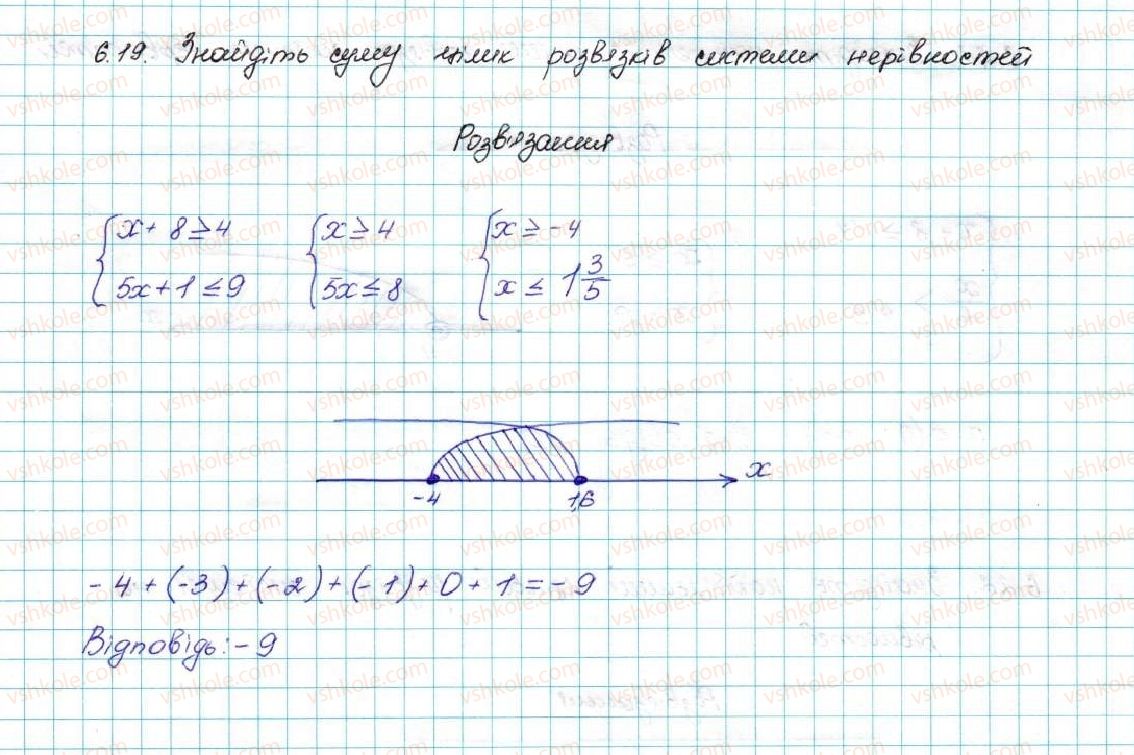 6.19. Знайдіть суму цілих розвязків системи нерівностей
Розв'язання
{x + 8 ≥ 4 {x ≥ 4 {x ≥ -4
5x + 1 ≤ 9 5x ≤ 8 x ≤ 1 3/5
x
-4 1,6
- 4 + (-3) + (-2) + (-1) + 0 + 1 = - 9
Відповідь: - 9
vshkole.com